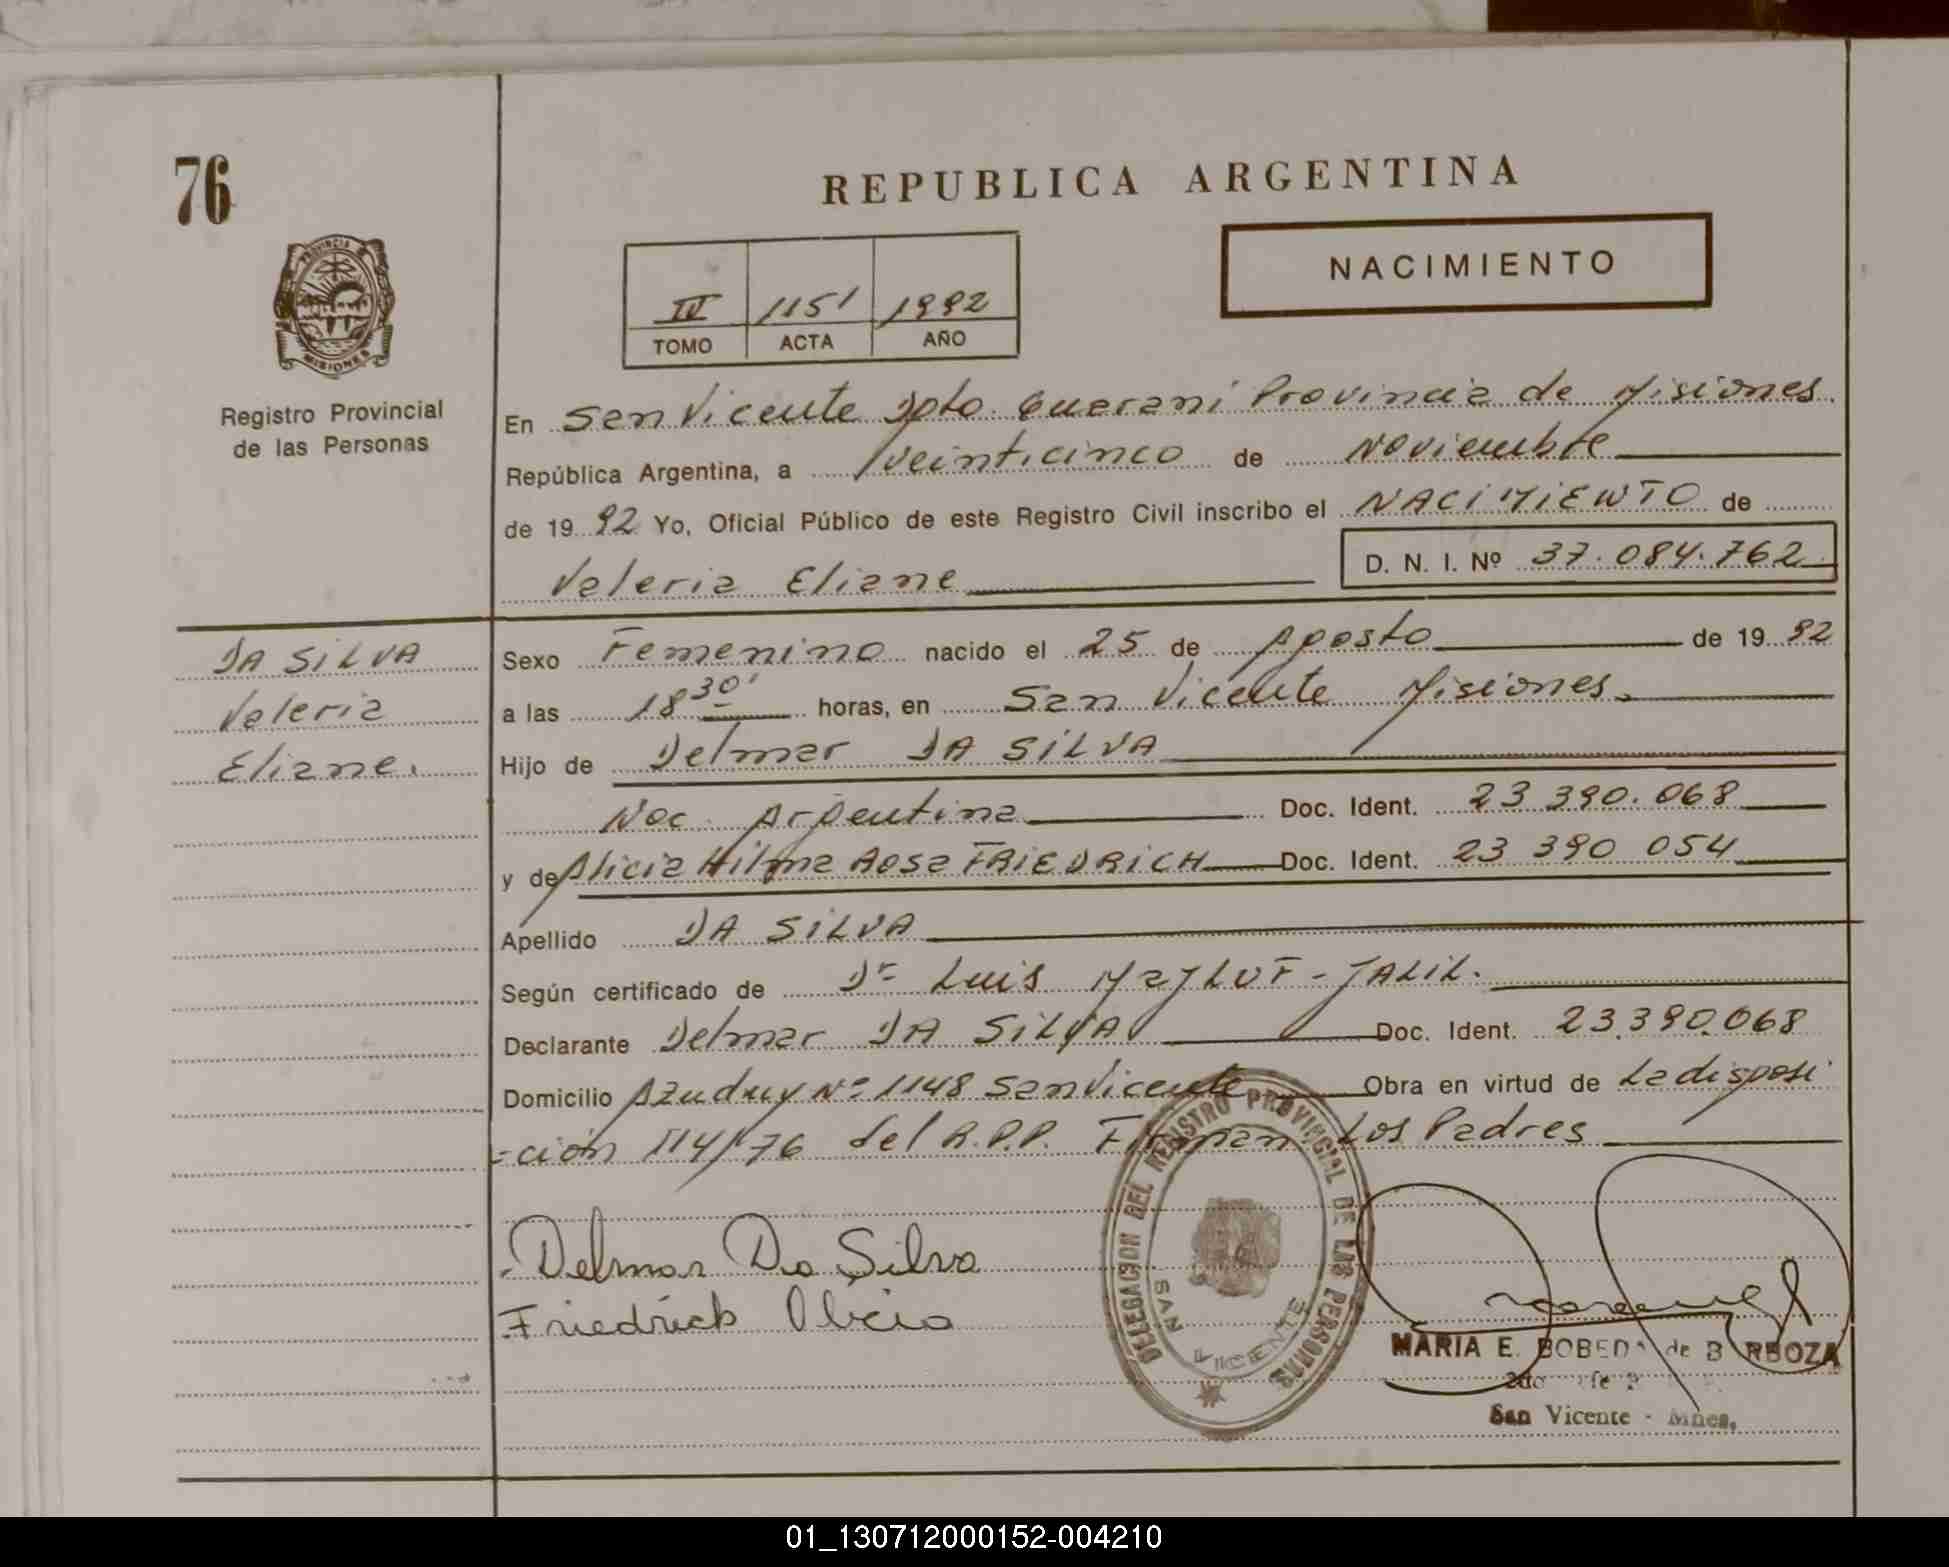 76
PROVINCIA DE
MISIONES
Registro Provincial
de las Personas
REPUBLICA ARGENTINA
NACIMIENTO
IV 1151 1992
TOMO ACTA AÑO
En San Vicente Dpto. Guarani Provincia de Misiones.
República Argentina, a veinticinco de Noviembre
de 1992 Yo, Oficial Público de este Registro Civil inscribo el NACIMIENTO de
Valeria Eliane D. N. I. Nº 37.084.762
DA SILVA
Valeria
Eliane.
Sexo Femenino nacido el 25 de Agosto de 1992
a las 18 30' horas, en San Vicente Misiones.
Hijo de Delmar DA SILVA
Nac. Argentina Doc. Ident. 23 390.068
y de Alicia Hilma Rosa FRIEDRICH Doc. Ident. 23 390 054
Apellido DA SILVA
Según certificado de Dr Luis JALIL.
Declarante Delmar DA SILVA Doc. Ident. 23.390.068
Domicilio Azuduy Nº 1148 San Vicente Obra en virtud de La disposi
=ción 114/76 del R.P.P. Firman Los Padres
Delmar Da Silva
Friedrich Alicia
DELEGACION DEL REGISTRO PROVINCIAL DE LAS PERSONAS
SAN VICENTE
MARIA E. BOBEDA de BARBOZA
2do
San Vicente - Mnes.
01_130712000152-004210